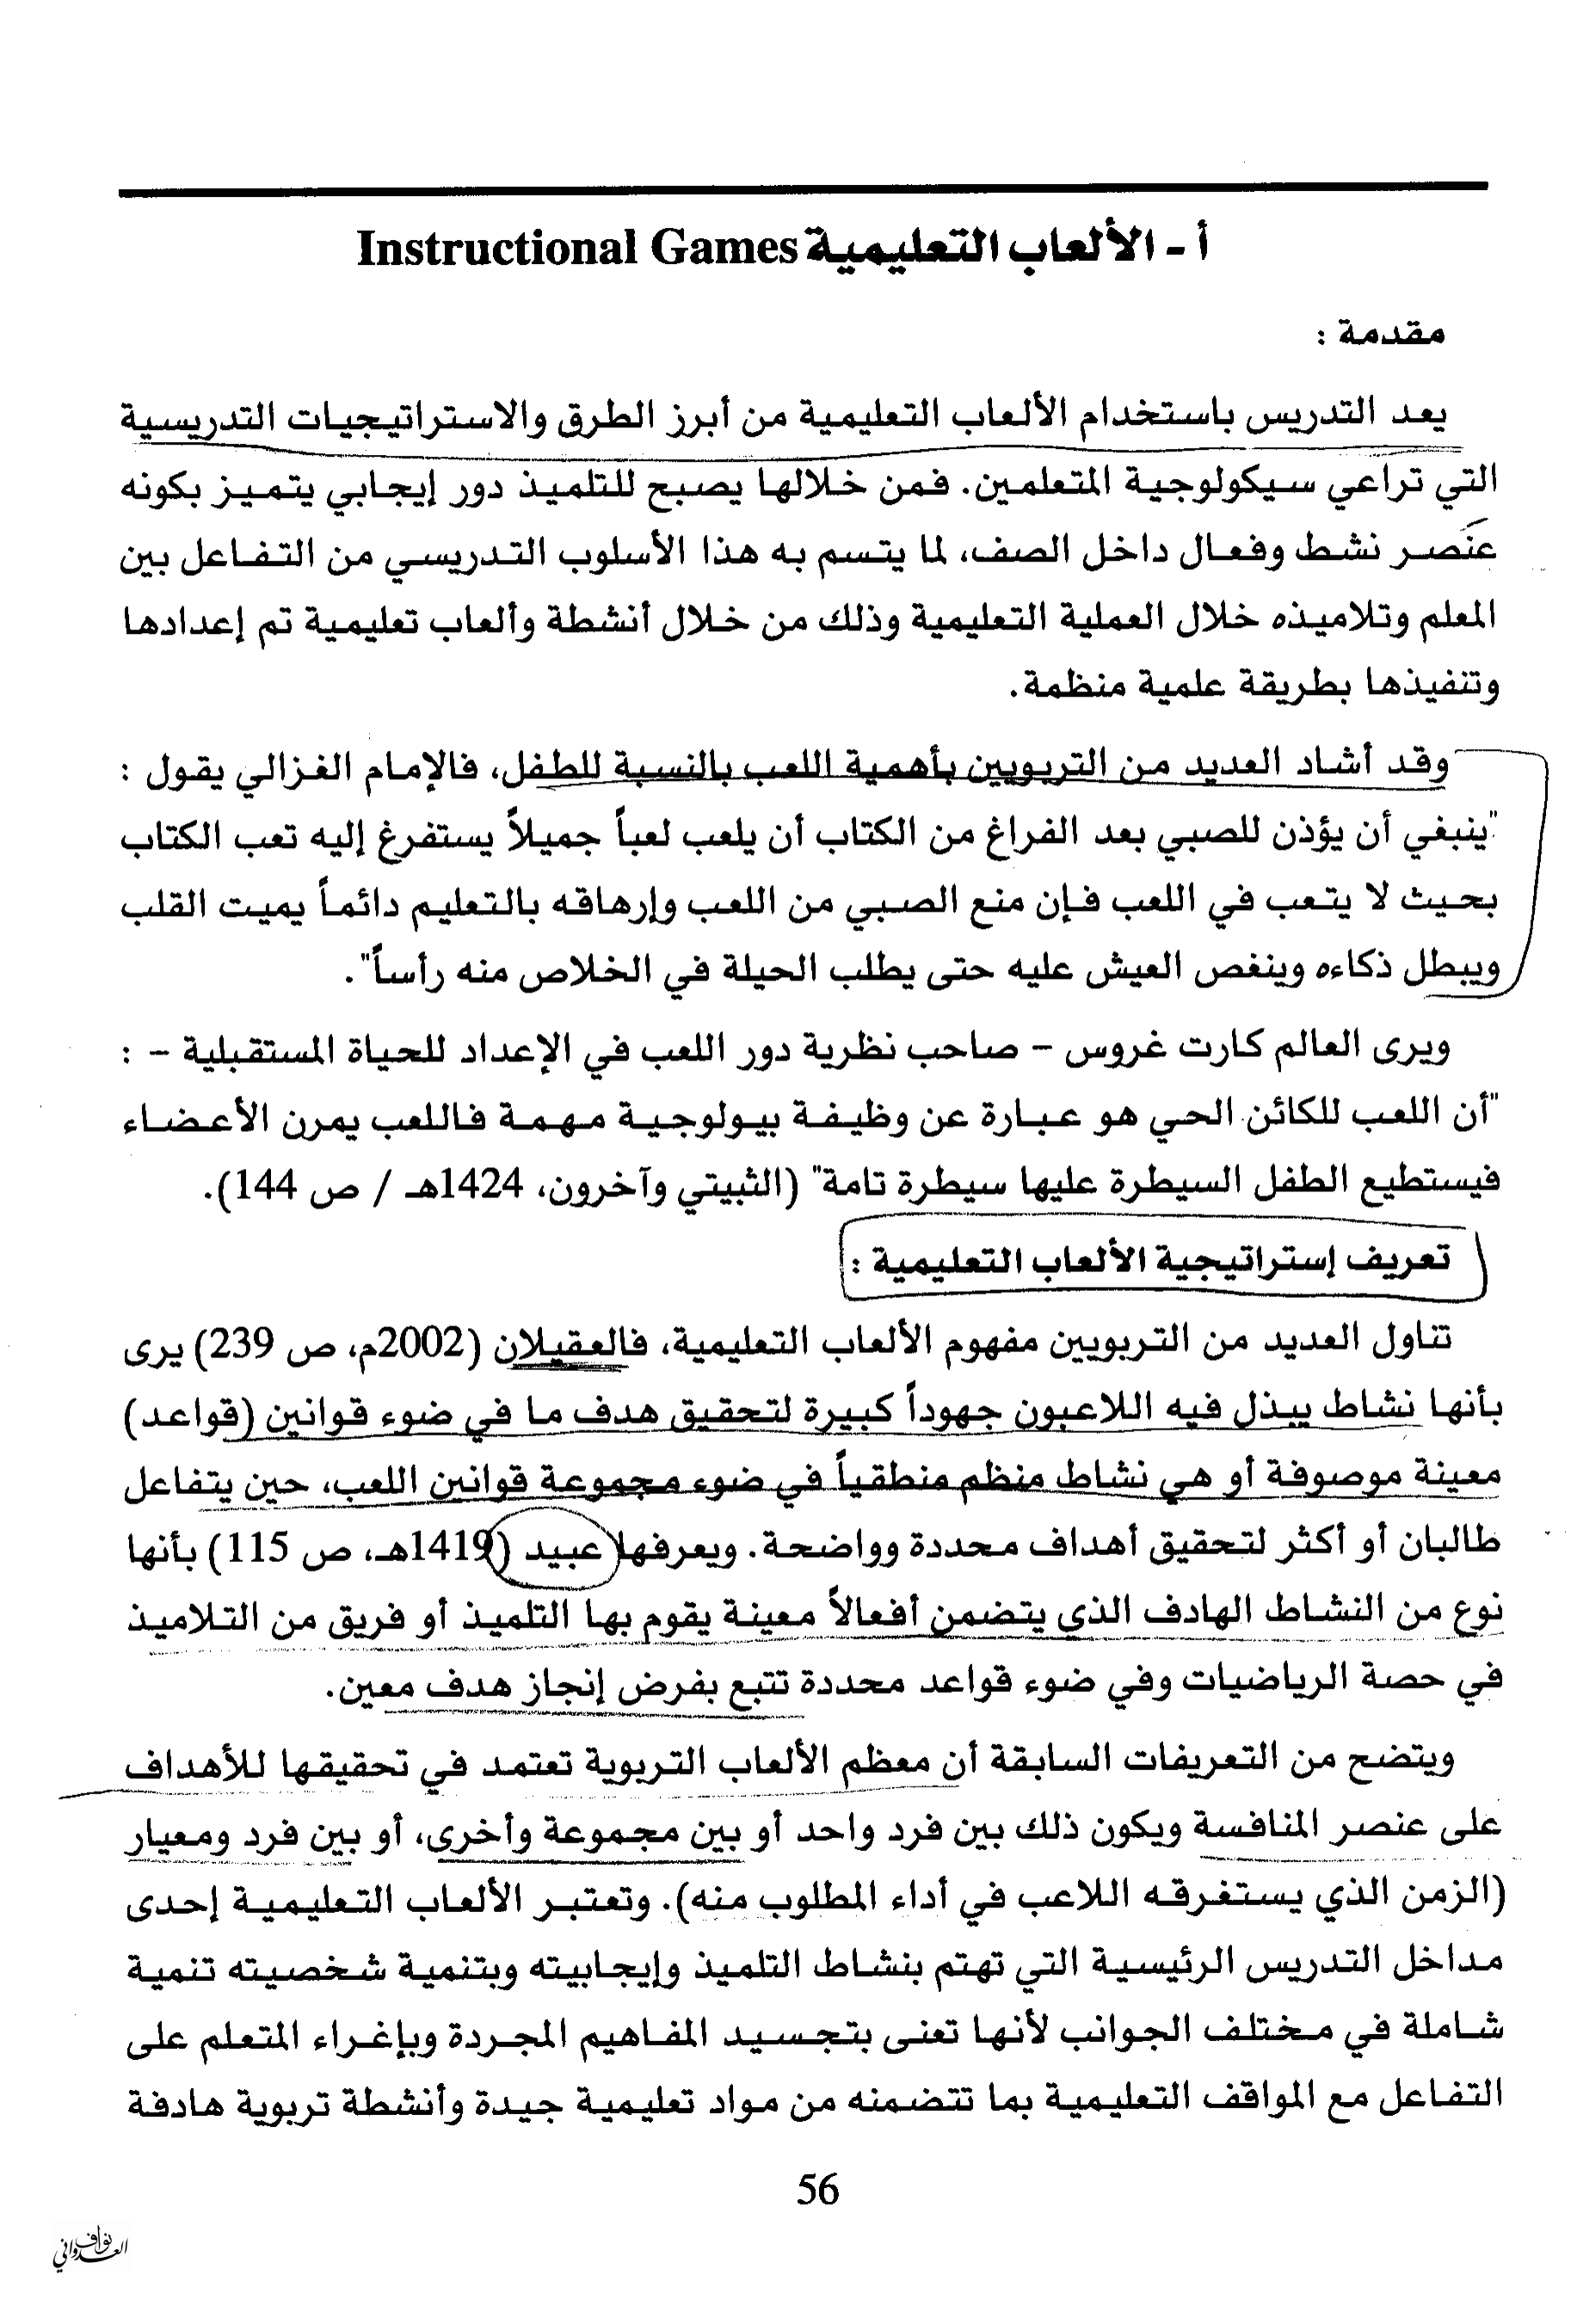 أ - الألعاب التعليمية Instructional Games
مقدمة :
يعد التدريس باستخدام الألعاب التعليمية من أبرز الطرق والاستراتيجيات التدريسية
التي تراعي سيكولوجية المتعلمين. فمن خلالها يصبح للتلميذ دور إيجابي يتميز بكونه
عنَصر نشط وفعال داخل الصف، لما يتسم به هذا الأسلوب التدريسي من التفاعل بين
المعلم وتلاميذه خلال العملية التعليمية وذلك من خلال أنشطة وألعاب تعليمية تم إعدادها
وتنفيذها بطريقة علمية منظمة.
وقد أشاد العديد من التربويين بأهمية اللعب بالنسبة للطفل، فالإمام الغزالي يقول :
"ينبغي أن يؤذن للصبي بعد الفراغ من الكتاب أن يلعب لعباً جميلاً يستفرغ إليه تعب الكتاب
بحيث لا يتعب في اللعب فإن منع الصبي من اللعب وإرهاقه بالتعليم دائماً يميت القلب
ويبطل ذكاءه وينغص العيش عليه حتى يطلب الحيلة في الخلاص منه رأساً".
ويرى العالم كارت غروس - صاحب نظرية دور اللعب في الإعداد للحياة المستقبلية - :
"أن اللعب للكائن الحي هو عبارة عن وظيفة بيولوجية مهمة فاللعب يمرن الأعضاء
فيستطيع الطفل السيطرة عليها سيطرة تامة" (الثبيتي وآخرون، 1424هـ / ص 144).
تعريف إستراتيجية الألعاب التعليمية :
تناول العديد من التربويين مفهوم الألعاب التعليمية، فالعقيلان (2002م، ص 239) يرى
بأنها نشاط يبذل فيه اللاعبون جهوداً كبيرة لتحقيق هدف ما في ضوء قوانين (قواعد)
معينة موصوفة أو هي نشاط منظم منطقياً في ضوء مجموعة قوانين اللعب، حين يتفاعل
طالبان أو أكثر لتحقيق أهداف محددة وواضحة. ويعرفها عبيد (1419هـ، ص 115) بأنها
نوع من النشاط الهادف الذي يتضمن أفعالاً معينة يقوم بها التلميذ أو فريق من التلاميذ
في حصة الرياضيات وفي ضوء قواعد محددة تتبع بفرض إنجاز هدف معين.
ويتضح من التعريفات السابقة أن معظم الألعاب التربوية تعتمد في تحقيقها للأهداف
على عنصر المنافسة ويكون ذلك بين فرد واحد أو بين مجموعة وأخرى، أو بين فرد ومعيار
(الزمن الذي يستغرقه اللاعب في أداء المطلوب منه). وتعتبر الألعاب التعليمية إحدى
مداخل التدريس الرئيسية التي تهتم بنشاط التلميذ وإيجابيته وبتنمية شخصيته تنمية
شاملة في مختلف الجوانب لأنها تعنى بتجسيد المفاهيم المجردة وبإغراء المتعلم على
التفاعل مع المواقف التعليمية بما تتضمنه من مواد تعليمية جيدة وأنشطة تربوية هادفة
56
نواف
العدواني